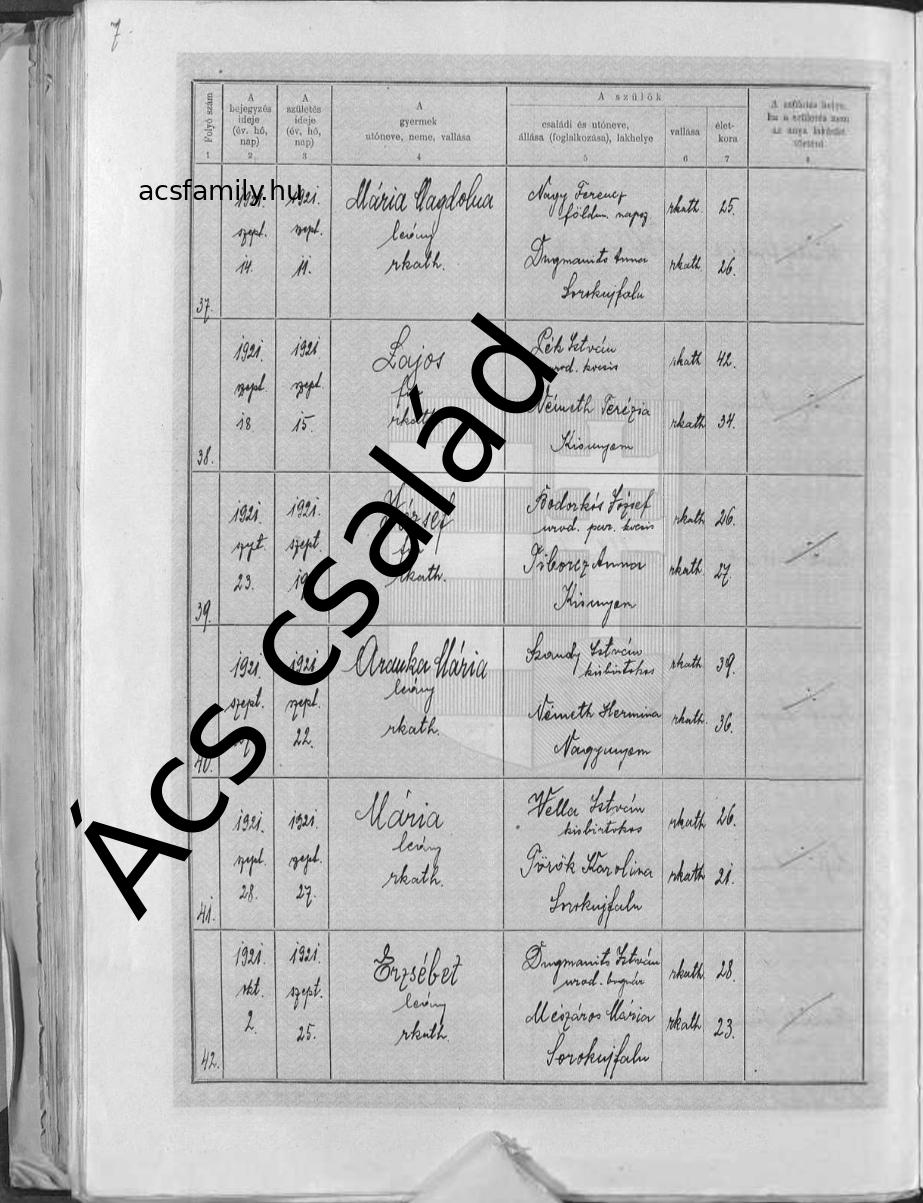 7
Folyó szám
A bejegyzés ideje (év. hó, nap)
A születés ideje (év, hó, nap)
A gyermek utóneve, neme, vallása
A szülők
családi és utóneve, állása (foglalkozása), lakhelye
vallása
élet-kora
A születés helye, ha a születés nem az anya lakásán történt
1 2. 3 4 5 6 7 8
acsfamily.hu
37. 1921. szept. 14.
1921. szept. 11.
Mária Magdolna
leány
rkath.
Nagy Ferenc rkath. 25.
földm. naps.
Dugmanits Anna rkath. 26.
Sorokujfalu
38. 1921. szept. 18.
1921 szept. 15.
Lajos
fiu
rkath
Pék István rkath 42.
urad. kocsis
Németh Terézia rkath 34.
Kisunyom
39. 1921. szept. 23.
1921. szept.
József
rkath.
Bodorkós József rkath 26.
urod. par. kocsis
Tiborcz Anna rkath. 27.
Kisunyom
40. 1921. szept.
1921 szept. 22.
Aranka Mária
leány
rkath.
István rkath 39.
kisbirtokos
Németh Hermina rkath. 36.
Nagyunyom
41. 1921. szept. 28.
1921. szept. 27.
Mária
leány
rkath.
Wella István rkath 26.
kisbirtokos
Török Karolina rkath 21.
Sorokujfalu
42. 1921. okt. 2.
1921. szept. 25.
Erzsébet
leány
rkath.
Dugmanits István rkath. 28
urod. bognár
Mészáros Mária rkath 23.
Sorokujfalu
Ács család